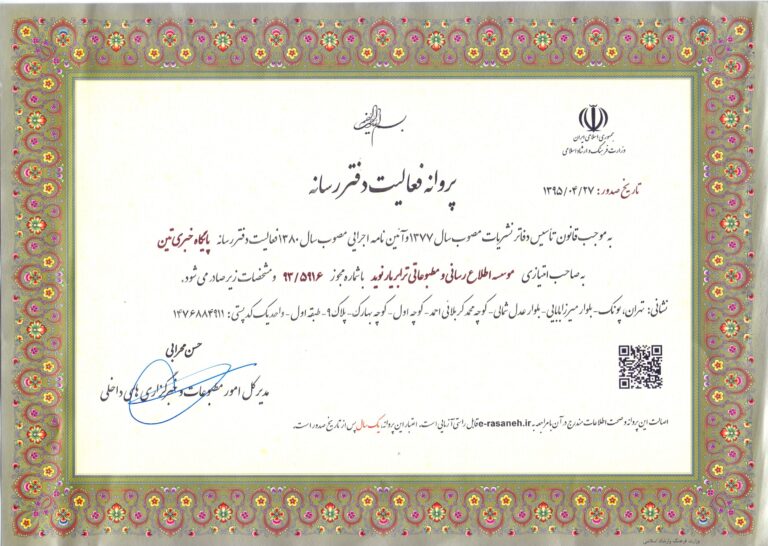 جمهوری اسلامی ایران
وزارت فرهنگ و ارشاد اسلامی
پروانه فعالیت دفتر رسانه
تاریخ صدور: ۱۳۹۵/۰۴/۲۷
به موجب قانون تأسیس دفاتر نشریات مصوب سال ۱۳۷۷ و آئین نامه اجرایی مصوب سال ۱۳۸۰ فعالیت دفتر رسانه پایگاه خبری تین
به صاحب امتیازی موسسه اطلاع رسانی و مطبوعاتی ترابر یار نوید با شماره مجوز ۹۳/۵۹۱۶ و مشخصات زیر صادر می شود.
نشانی: تهران، پونک - بلوار میرزابابایی - بلوار عدل شمالی - کوچه محمد کربلائی احمد - کوچه اول - کوچه بهارک - پلاک ۹ - طبقه اول - واحد یک کد پستی: ۱۴۷۶۸۸۴۹۱۱
حسن محرابی
مدیر کل امور مطبوعات و خبرگزاری های داخلی
اصالت این پروانه و صحت اطلاعات مندرج در آن با مراجعه به e-rasaneh.ir قابل راستی آزمایی است. اعتبار این پروانه یک سال پس از تاریخ صدور است.
وزارت فرهنگ و ارشاد اسلامی